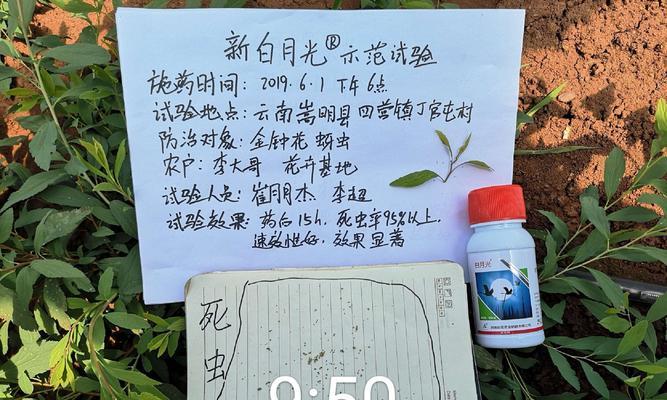 新白月光®示范试验
施药时间：2019.6.1 下午6点
试验地点：云南嵩明县四营镇丁官屯村
防治对象：金钟花 蚜虫
农户：李大哥 花卉基地
试验人员：崔明杰 李超
试验效果：药后15h，死虫率95%以上，
速效性好，效果显著
白月光
死虫
9:50